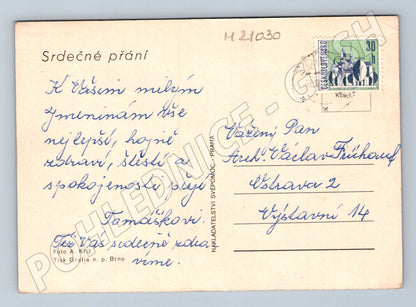 M 21030
Srdečné přání
K Vašim milým
jmeninám Vše
nejlepší, hojně
zdraví, štěstí a
spokojenosti přejí
Tomáškovi.
Též Vás srdečně zdra
víme.
Foto A. Kříž
Tisk Grafia n. p. Brno
NAKLADATELSTVÍ SVÉPOMOC - PRAHA
ČESKOSLOVENSKO
30 h
Vážený Pan
Arch. Václav
Ostrava 2
Výstavní 14
POHLEDNICE - CZECH